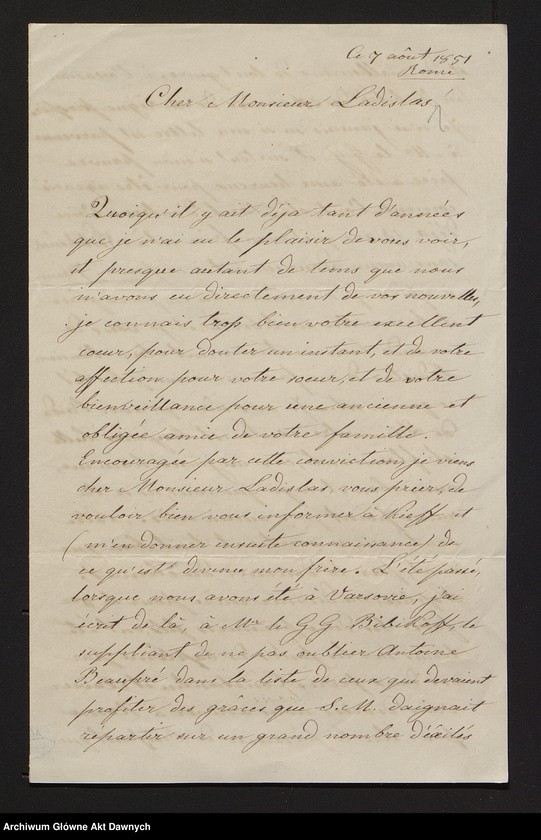 Ce 7 aôut 1851
Rome
Cher Monsieur Ladislas,
Quoiqu'il y ait déja tant d'années
que je n'ai eu le plaisir de vous voir,
et presque autant de tems que nous
n'avons eu directement de vos nouvelles,
je connais trop bien votre excellent
coeur, pour douter un instant, et de votre
affection pour votre soeur, et de votre
bienveillance pour une ancienne et
obligée amie de votre famille.
Encouragée par cette conviction, je viens
cher Monsieur Ladislas, vous prier, de
vouloir bien vous informer à Kieff et
(m'en donner ensuite connaissance) de
ce qu'est devenu mon frère. L'été passé,
lorsque nous avons été à Varsovie, j'ai
écrit de là, à Mr le G G Bibikoff, le
suppliant de ne pas oublier Antoine
Beaupré dans la liste de ceux qui devaient
profiter des grâces que S. M. daignait
répartir sur un grand nombre d'éxilés
Archiwum Główne Akt Dawnych